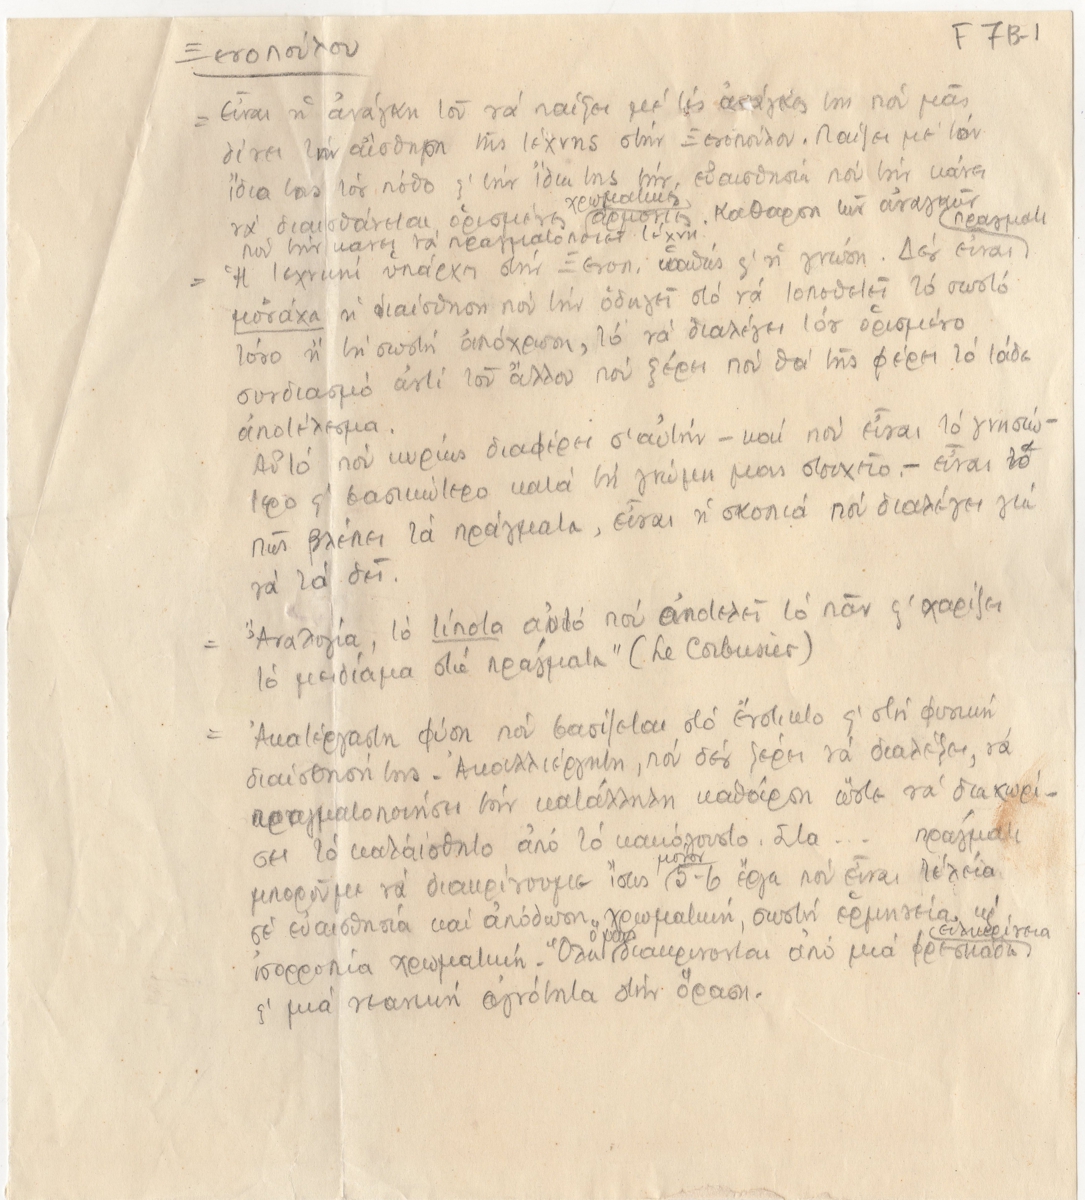 Ξενοπούλου
F 7B-1
= Εἶναι ἡ ἀνάγκη τοῦ νά παίξει μέ τίς ἀνάγκες της πού μᾶς
δίνει τήν αἴσθηση τῆς τέχνης στήν Ξενοπούλου. Παίζει μέ τόν
ἴδιο της τόν πόθο ς' τήν ἴδια της τήν εὐαισθησία πού τήν κάνει
νά διαισθάνεται ὁρισμένες χρωματικές ἁρμονίες. Κάθαρση τῶν ἀναγκῶν
πού τήν κάνει νά πραγματοποιεῖ τέχνη.
= Ἡ τεχνική ὑπάρχει στήν Ξενοπ. καθώς ς' ἡ γνώση. Δέν εἶναι πραγματι
μονάχα ἡ διαίσθηση πού τήν ὁδηγεῖ στό νά τοποθετεῖ τό σωστό
τόνο ἤ τή σωστή ἀπόχρωση, τό νά διαλέγει τόν ὁρισμένο
συνδιασμό ἀντί τοῦ ἄλλου πού ξέρει πού θά τῆς φέρει τό τάδε
ἀποτέλεσμα.
Αὐτό πού κυρίως διαφέρει σ' αὐτήν – καί πού εἶναι τό γνησιώ-
τερο ς' βασικώτερο κατά τή γνώμη μας στοιχεῖο – εἶναι τό
πῶς βλέπει τά πράγματα, εἶναι ἡ σκοπιά πού διαλέγει γιά
νά τά δεῖ.
= "Ἀναλογία, τό τίποτα αὐτό πού ἀποτελεῖ τό πᾶν ς' χαρίζει
τό μειδίαμα στά πράγματα" (Le Corbusier)
= Ἀκατέργαστη φύση πού βασίζεται στό ἔνστικτο ς' στή φυσική
διαίσθησή της. Ἀκαλλιέργητη, πού δέν ξέρει νά διαλέξει, νά
πραγματοποιήσει τήν κατάλληλη κάθαρση ὥστε νά διαχωρί-
σει τό καλαίσθητο ἀπό τό κακόγουστο. Στα ... πραγματι
μποροῦμε νά διακρίνουμε ἴσως μόνον 5-6 ἔργα πού εἶναι τέλεια
σέ εὐαισθησία καί ἀπόδωση χρωματική, σωστή ἑρμηνεία κι
ἰσορροπία χρωματική. Ὅλα ὅμως διακρίνονται ἀπό μιά φρεσκάδα εὐλικρίνεια
ς' μιά νεανική ἁγνότητα στήν ὅραση.